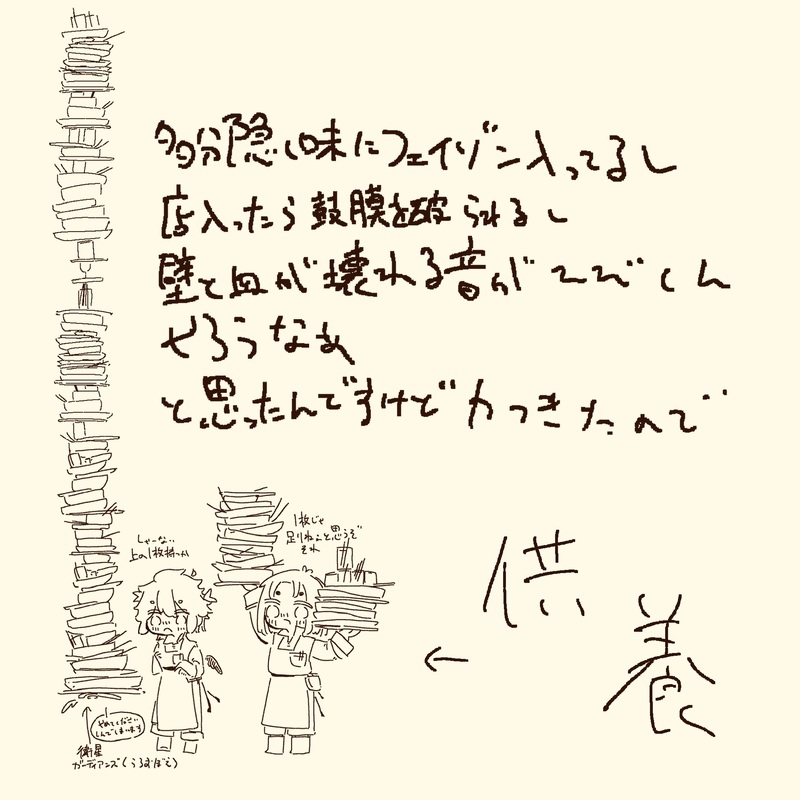 多分隠し味にフェイゾン入ってるし
店入ったら鼓膜を破られるし
壁と皿が壊れる音がひびくん
やろうなぁ
と思ったんですけど力つきたので
供
養
←
しゃーない
上の1枚持つか
1枚じゃ
足りねぇと思うぞ
それ
やめてください
しんでしまいます
衛星
ガーディアンズ(うろおぼえ)